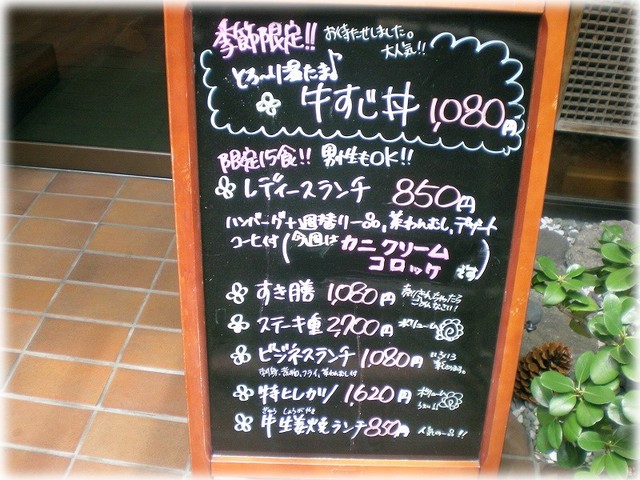 季節限定!! お待たせしました。
大人気!!
とろ～り温たま♪
牛すじ丼 1,080円
限定15食!! 男性もOK!!
レディースランチ 850円
ハンバーグ+週替り一品,茶わんむし,デザート
コーヒー付(今週はカニクリーム
コロッケです)
すき膳 1,080円 売りきれちゃったら
ごめんなさい!
ステーキ重 2,700円 ボリューム
ビジネスランチ 1,080円
特ヒレカツ 1,620円 ボリューム
ぎゅう しょうがやき
牛生姜焼ランチ 850円 人気の一品!!